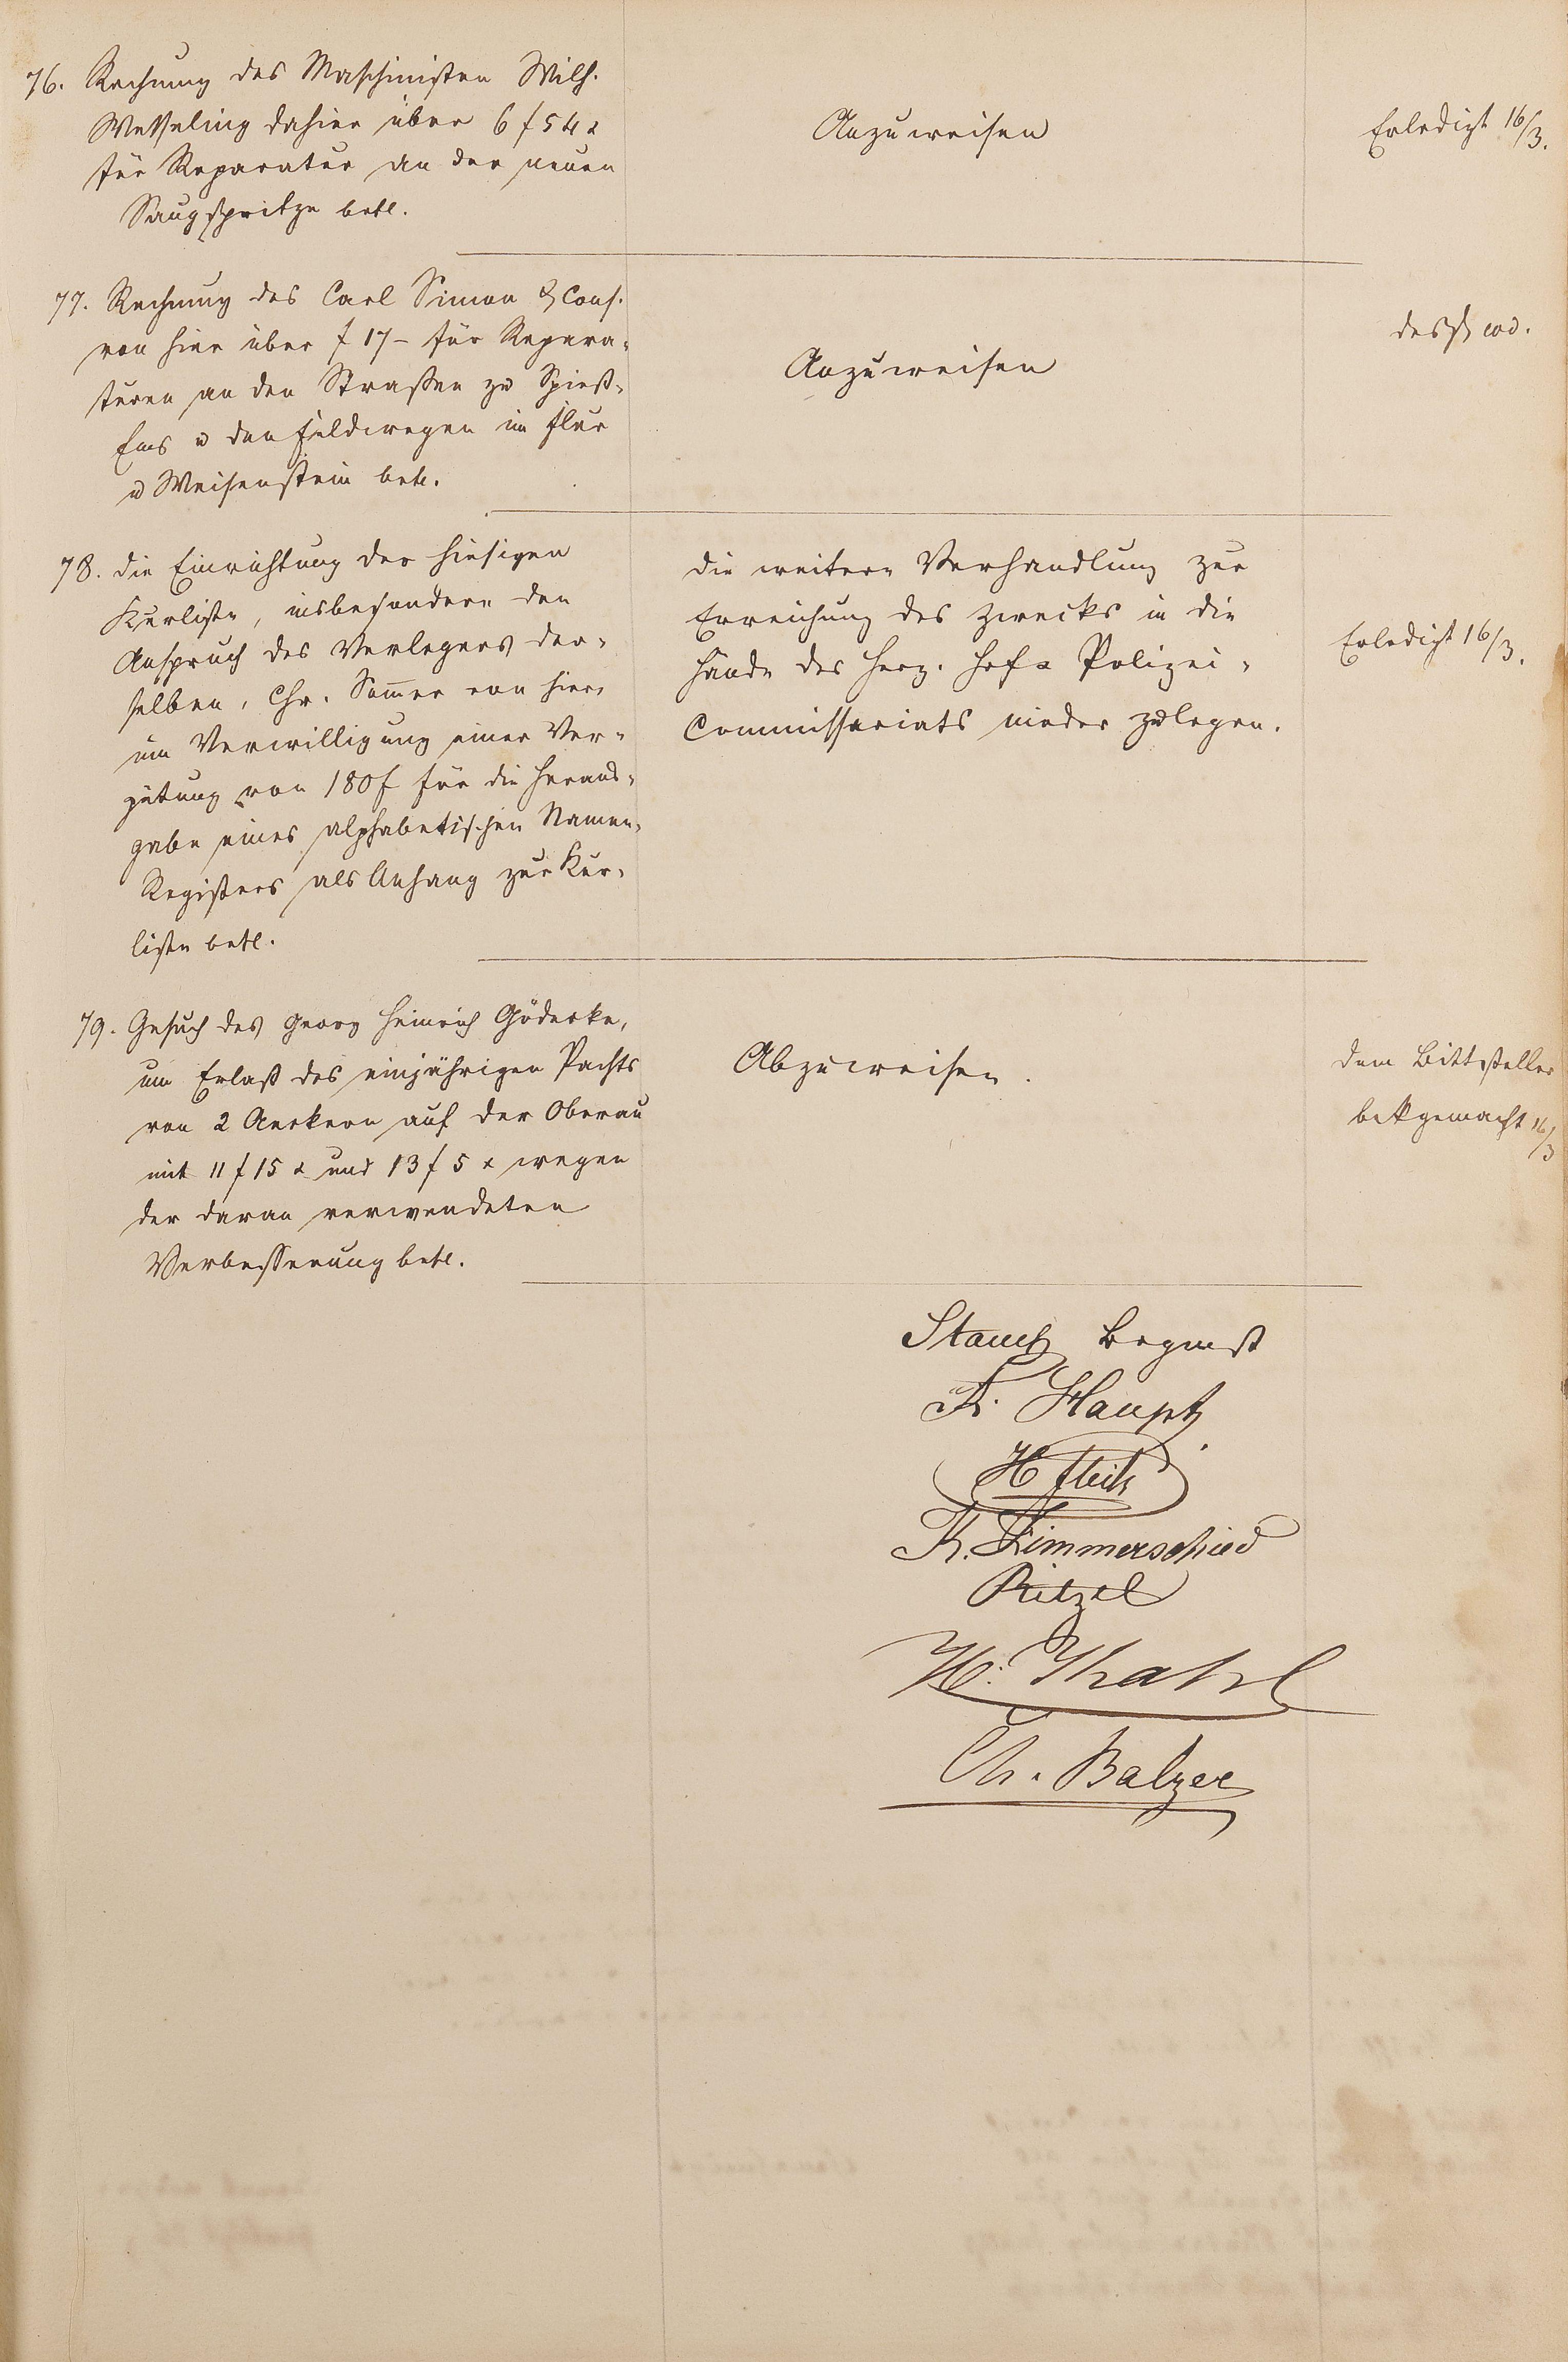 76. Rechnung des Maschinisten Wilh.
Wesseling dahier über 6 f 54 x
für Reparatur an der neuen
Saugspritze betl.
Anzuweisen
Erledigt 16/3.
77. Rechnung des Carl Simon & Cons.
von hier über f 17 – für Repara-
turen an den Straßen zu Spieß-
Ems u den Feldwegen im Flur
u Weisenstein betl.
Anzuweisen
desgl. eod.
78. die Einrichtung der hiesigen
Kurliste, insbesondere den
Anspruch des Verlegers der-
selben, Chr. Sommer von hier,
um Verwilligung einer Ver-
gütung von 180 f für die Heraus-
gabe eines alphabetischen Namen-
Registers als Anhang zur Kur-
liste betl.
die weitere Verhandlung zur
Erreichung des Zwecks in die
Hände des Herz. Polizei-
Commissariats nieder zulegen.
Erledigt 16/3.
79. Gesuch des Georg Heinrich Gödecke,
um Erlaß des einjährigen Pachts
von 2 Aeckern auf der Oberau
mit 11 f 15 x und 13 f 5 x wegen
der daran verwendeten
Verbesserung betl.
Abzuweisen.
dem Bittsteller
bekgemacht 16/3
Stauch
K. Haupt
H Fleik
K. Zimmerschied
Ritzel
H. Thahl
Ch. Balzer